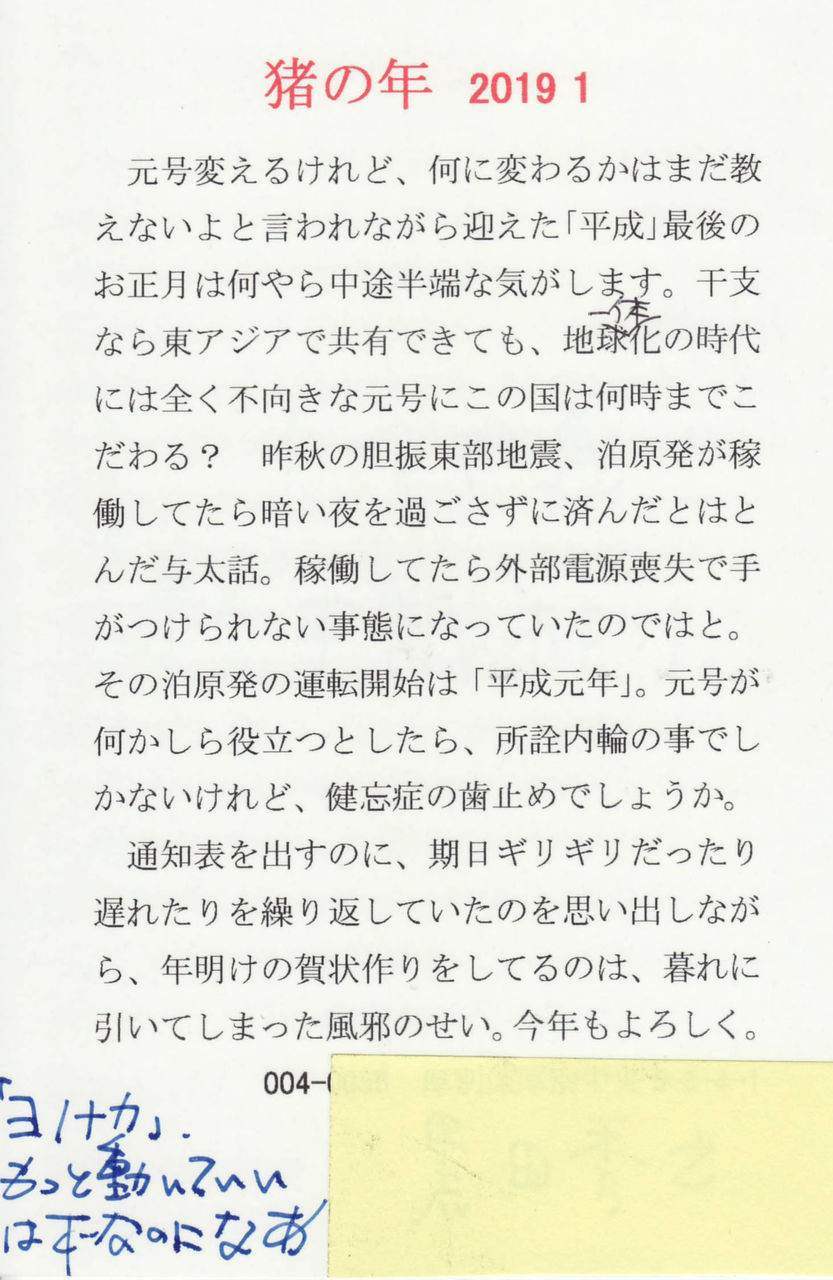 猪の年 2019 1
元号変えるけれど、何に変わるかはまだ教
えないよと言われながら迎えた「平成」最後の
お正月は何やら中途半端な気がします。干支
一体
なら東アジアで共有できても、地球化の時代
には全く不向きな元号にこの国は何時までこ
だわる？　昨秋の胆振東部地震、泊原発が稼
働してたら暗い夜を過ごさずに済んだとはと
んだ与太話。稼働してたら外部電源喪失で手
がつけられない事態になっていたのではと。
その泊原発の運転開始は「平成元年」。元号が
何かしら役立つとしたら、所詮内輪の事でし
かないけれど、健忘症の歯止めでしょうか。
通知表を出すのに、期日ギリギリだったり
遅れたりを繰り返していたのを思い出しなが
ら、年明けの賀状作りをしてるのは、暮れに
引いてしまった風邪のせい。今年もよろしく。
004-
もっと動いていい
はずなのになあ